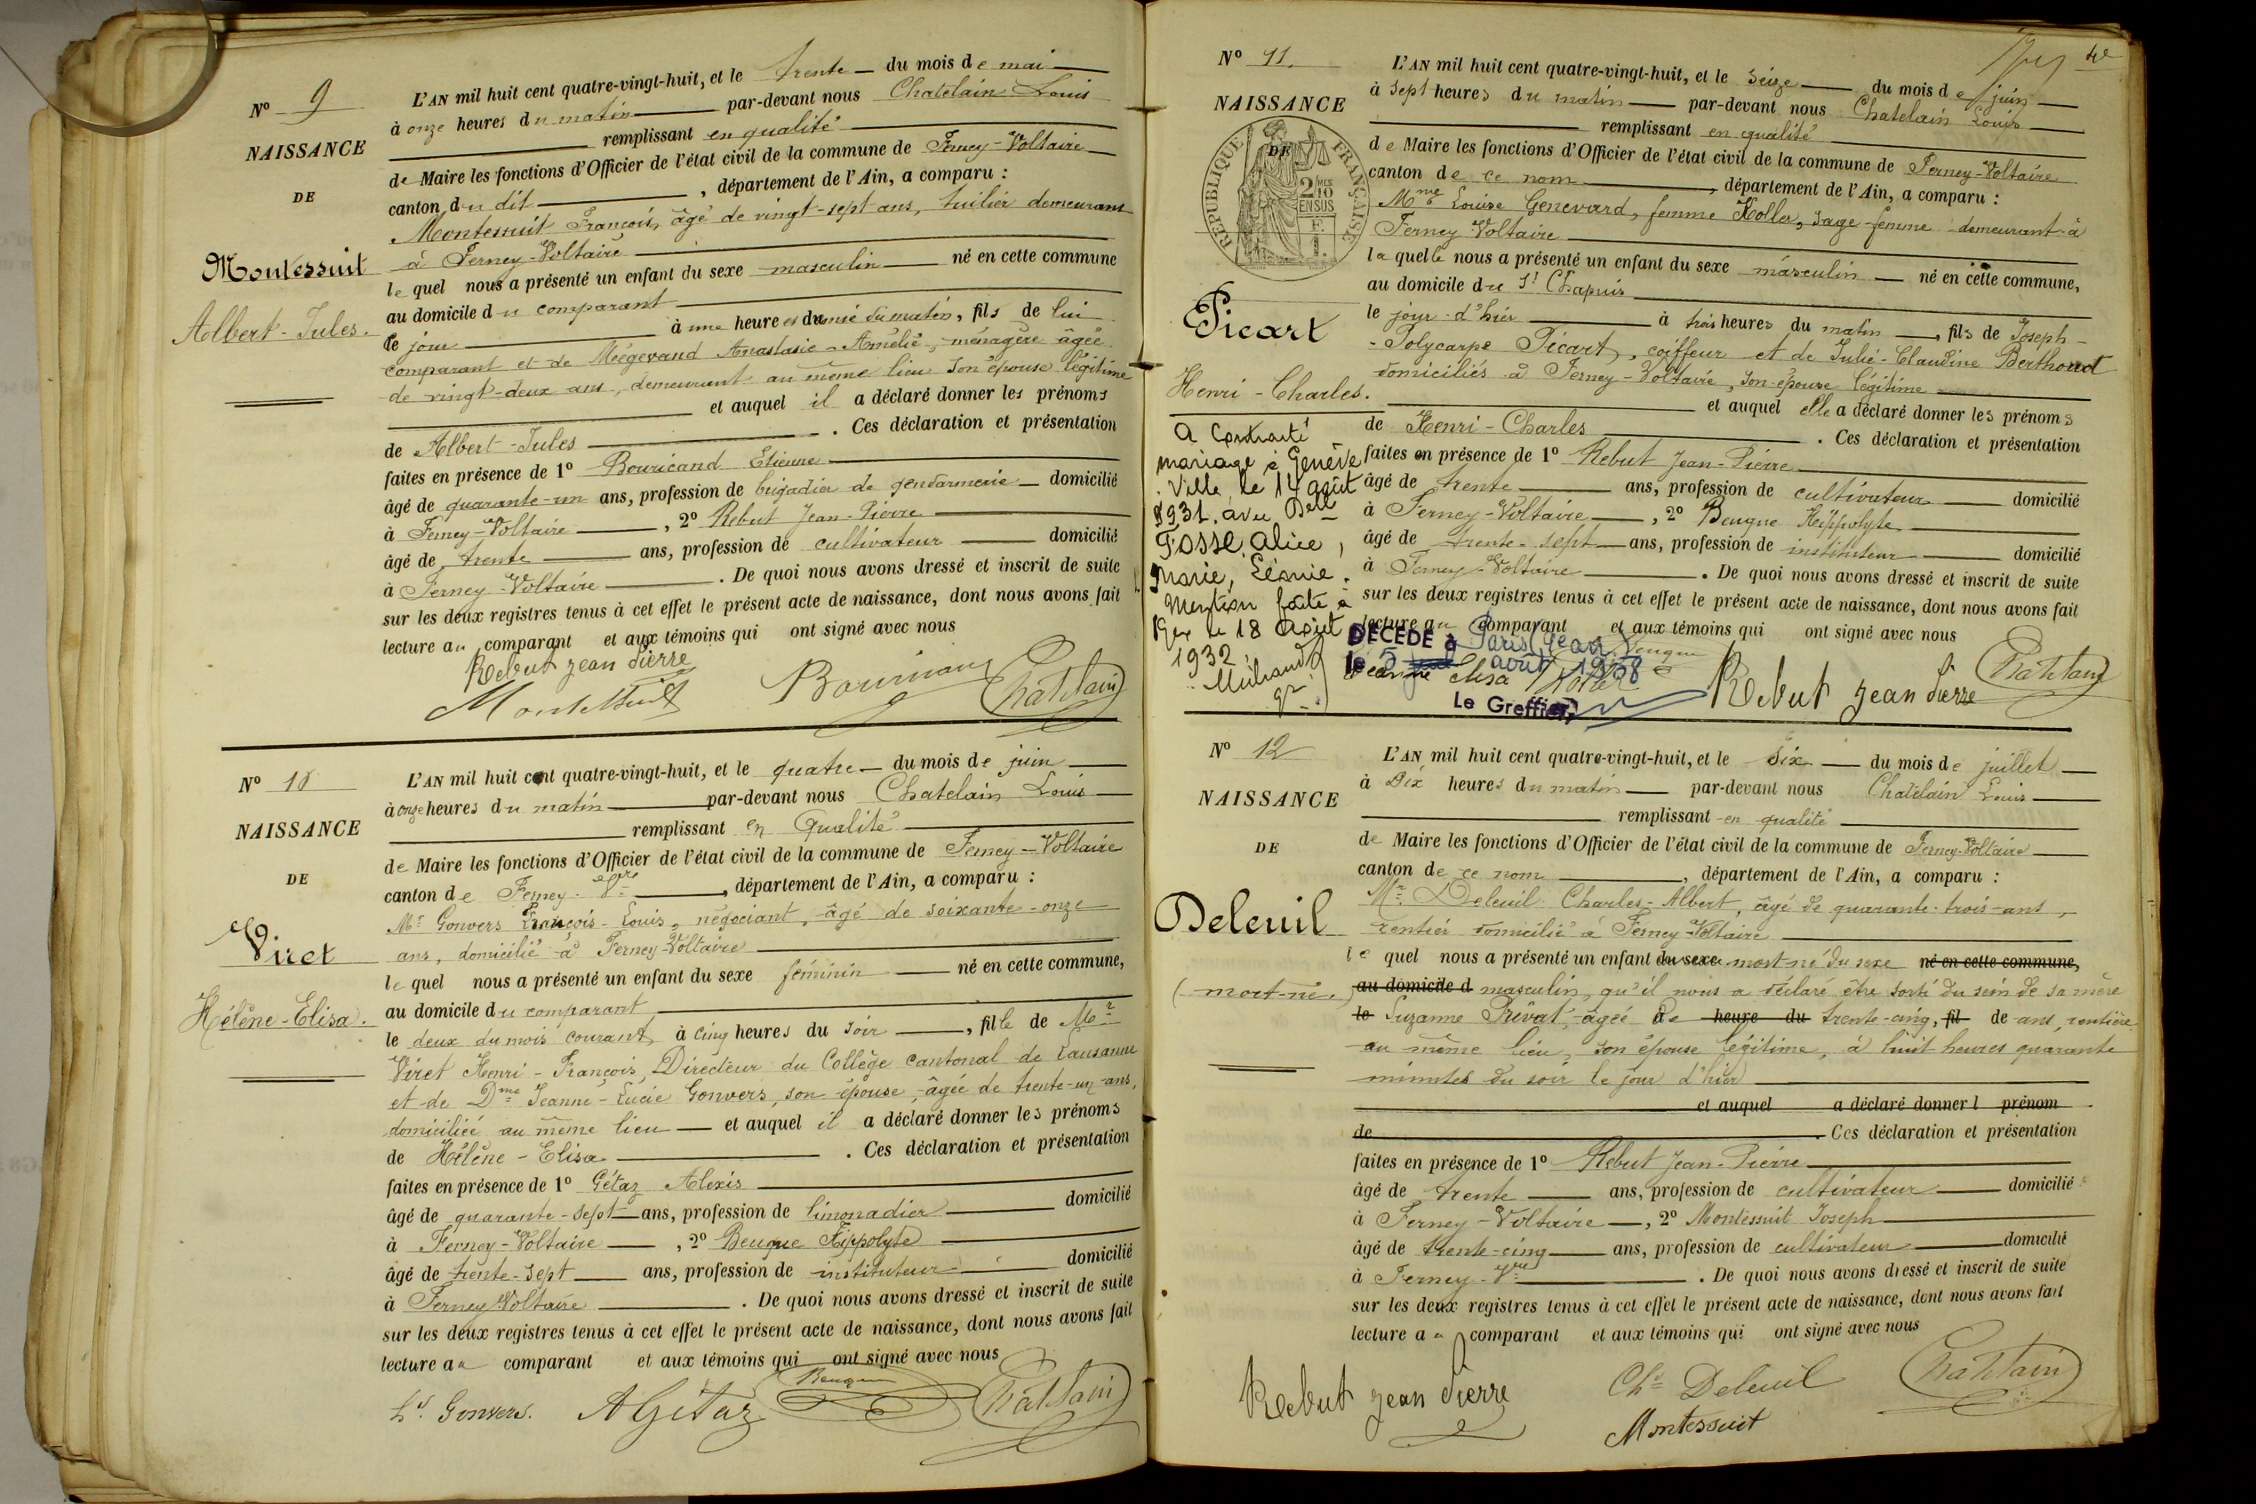 N° 9
NAISSANCE
DE
Montessuit
Albert-Jules.
L'AN mil huit cent quatre-vingt-huit, et le trente du mois de mai
à onze heures du matin par-devant nous Chatelain Louis
remplissant en qualité
de Maire les fonctions d'Officier de l'état civil de la commune de Ferney-Voltaire
canton du dit, département de l'Ain, a comparu :
Montessuit François, âgé de vingt-sept ans, tuilier demeurant
à Ferney-Voltaire
lequel nous a présenté un enfant du sexe masculin né en cette commune
au domicile du comparant
le jour à une heure du matin, fils de lui
comparant et de Mégevand Anastasie-Amélie, ménagère âgée
de vingt-deux ans, demeurant au même lieu son épouse légitime
et auquel il a déclaré donner les prénoms
de Albert-Jules. Ces déclaration et présentation
faites en présence de 1° Bouricand Etienne
âgé de quarante-un ans, profession de brigadier de gendarmerie domicilié
à Ferney-Voltaire, 2° Rebut Jean-Pierre
âgé de trente ans, profession de cultivateur domicilié
à Ferney-Voltaire. De quoi nous avons dressé et inscrit de suite
sur les deux registres tenus à cet effet le présent acte de naissance, dont nous avons fait
lecture au comparant et aux témoins qui ont signé avec nous
Rebut jean Pierre
Montessuit
Chatelain
N° 10
NAISSANCE
DE
Viret
Hélène-Elisa.
L'AN mil huit cent quatre-vingt-huit, et le quatre du mois de juin
à onze heures du matin par-devant nous Chatelain Louis
remplissant en qualité
de Maire les fonctions d'Officier de l'état civil de la commune de Ferney-Voltaire
canton de Ferney-Vre, département de l'Ain, a comparu :
Mr Gonvers François-Louis, négociant, âgé de soixante-onze
ans, domicilié à Ferney-Voltaire
lequel nous a présenté un enfant du sexe féminin né en cette commune,
au domicile du comparant
le deux du mois courant, à cinq heures du soir, fille de Mr
Viret Henri-François, Directeur du Collège cantonal de Lausanne
et de Dme Jeanne-Lucie Gonvers, son épouse, âgée de trente-un ans,
domiciliée au même lieu et auquel il a déclaré donner les prénoms
de Hélène-Elisa. Ces déclaration et présentation
faites en présence de 1° Gétaz Alexis
âgé de quarante-sept ans, profession de limonadier domicilié
à Ferney-Voltaire, 2° Beuque Hippolyte
âgé de trente-sept ans, profession de instituteur domicilié
à Ferney-Voltaire. De quoi nous avons dressé et inscrit de suite
sur les deux registres tenus à cet effet le présent acte de naissance, dont nous avons fait
lecture au comparant et aux témoins qui ont signé avec nous
Ls. Gonvers. A Gétaz Beuque Chatelain
N° 11.
NAISSANCE
DE
RÉPUBLIQUE FRANÇAISE
2/10MES
EN SUS
Picart
Henri-Charles.
L'AN mil huit cent quatre-vingt-huit, et le seize du mois de juin
à sept heures du matin par-devant nous Chatelain Louis
remplissant en qualité
de Maire les fonctions d'Officier de l'état civil de la commune de Ferney-Voltaire
canton de ce nom, département de l'Ain, a comparu :
Mme Louise Genevard, femme Koller, sage-femme demeurant à
Ferney-Voltaire
laquelle nous a présenté un enfant du sexe masculin né en cette commune,
au domicile du Sr Chapuis
le jour d'hier à trois heures du matin, fils de Joseph-
-Polycarpe Picart, coiffeur et de Julie-Claudine Berthoud
domiciliés à Ferney-Voltaire, son épouse légitime
et auquel elle a déclaré donner les prénoms
de Henri-Charles. Ces déclaration et présentation
faites en présence de 1° Rebut Jean-Pierre
âgé de trente ans, profession de cultivateur domicilié
à Ferney-Voltaire, 2° Beuque Hippolyte
âgé de trente-sept ans, profession de instituteur domicilié
à Ferney-Voltaire. De quoi nous avons dressé et inscrit de suite
sur les deux registres tenus à cet effet le présent acte de naissance, dont nous avons fait
lecture au comparant et aux témoins qui ont signé avec nous
A Contracté
mariage à Genève
Ville, le 14 août
1931, avec Delle
Fosse, Alice,
Marie, Léonie.
Mention faite à
Gex le 18 août
1932
DÉCÉDÉ à Paris
le 5 août 1958
Le Greffier,
Rebut jean Pierre
Chatelain
N° 12
NAISSANCE
DE
Deleuil
(mort-né.)
L'AN mil huit cent quatre-vingt-huit, et le six du mois de juillet
à dix heures du matin par-devant nous Chatelain Louis
remplissant en qualité
de Maire les fonctions d'Officier de l'état civil de la commune de Ferney-Voltaire
canton de ce nom, département de l'Ain, a comparu :
Mr. Deleuil Charles-Albert, âgé de quarante-trois ans,
rentier domicilié à Ferney-Voltaire
lequel nous a présenté un enfant du sexe mort né du sexe né en cette commune,
au domicile d masculin, qu'il nous a déclaré être sorti du sein de sa mère
le Suzanne Privat, âgée de heure du trente-cinq, fil de ans, rentière
au même lieu, son épouse légitime, à huit heures quarante
minutes du soir le jour d'hier
et auquel a déclaré donner l prénom
de. Ces déclaration et présentation
faites en présence de 1° Rebut Jean-Pierre
âgé de trente ans, profession de cultivateur domicilié
à Ferney-Voltaire, 2° Montessuit Joseph
âgé de trente-cinq ans, profession de cultivateur domicilié
à Ferney-Vre. De quoi nous avons dressé et inscrit de suite
sur les deux registres tenus à cet effet le présent acte de naissance, dont nous avons fait
lecture au comparant et aux témoins qui ont signé avec nous
Rebut jean Pierre Chs Deleuil Chatelain
Montessuit